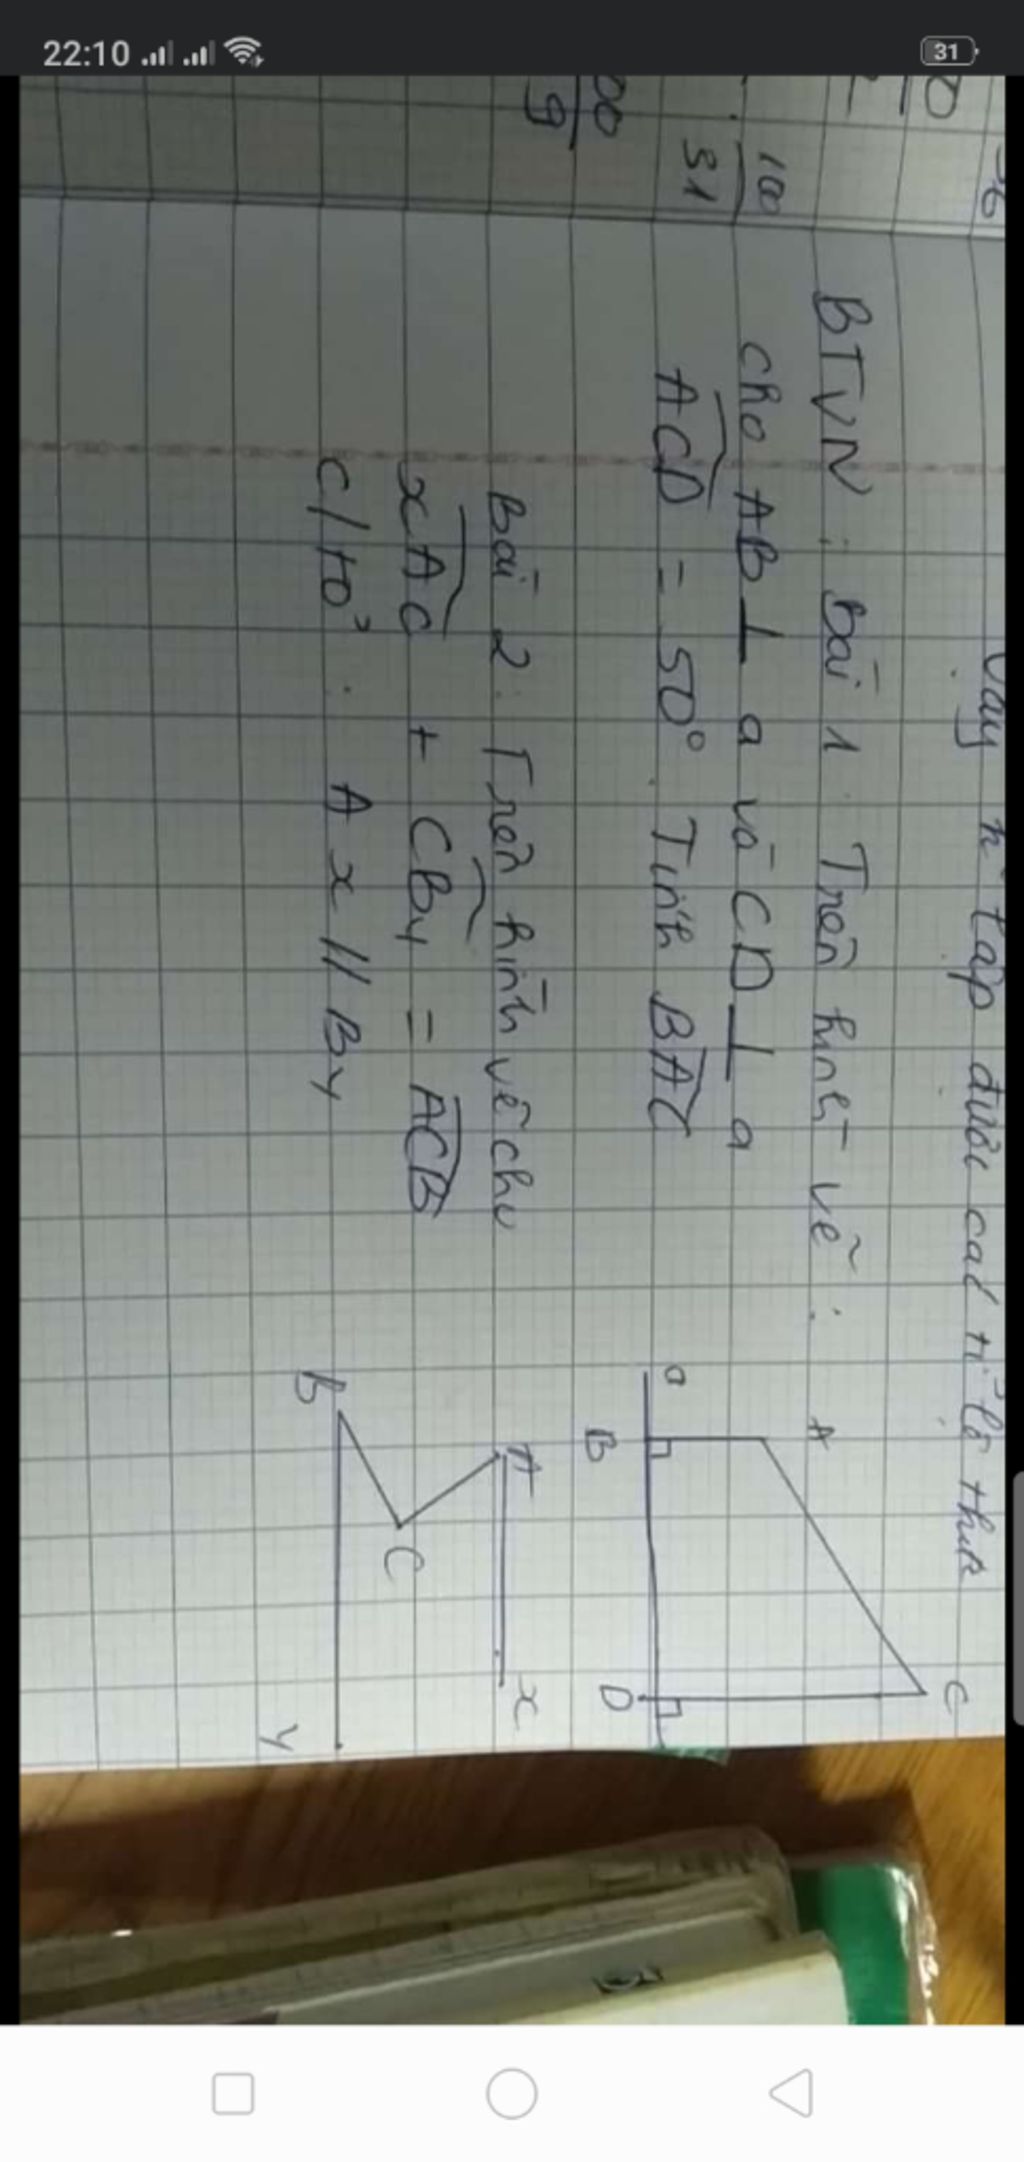 22:10
31
Vậy n̄ lập được các tỉ lệ thức
100
31
BTVN: bài 1. Trên hình vẽ:
cho AB ⊥ a và CD ⊥ a
ACD = 50°. Tính BAC
A
C
a
B
D
Bài 2. Trên hình vẽ cho
xAC + CBy = ACB
c/tỏ: Ax // By
A
x
C
B
y